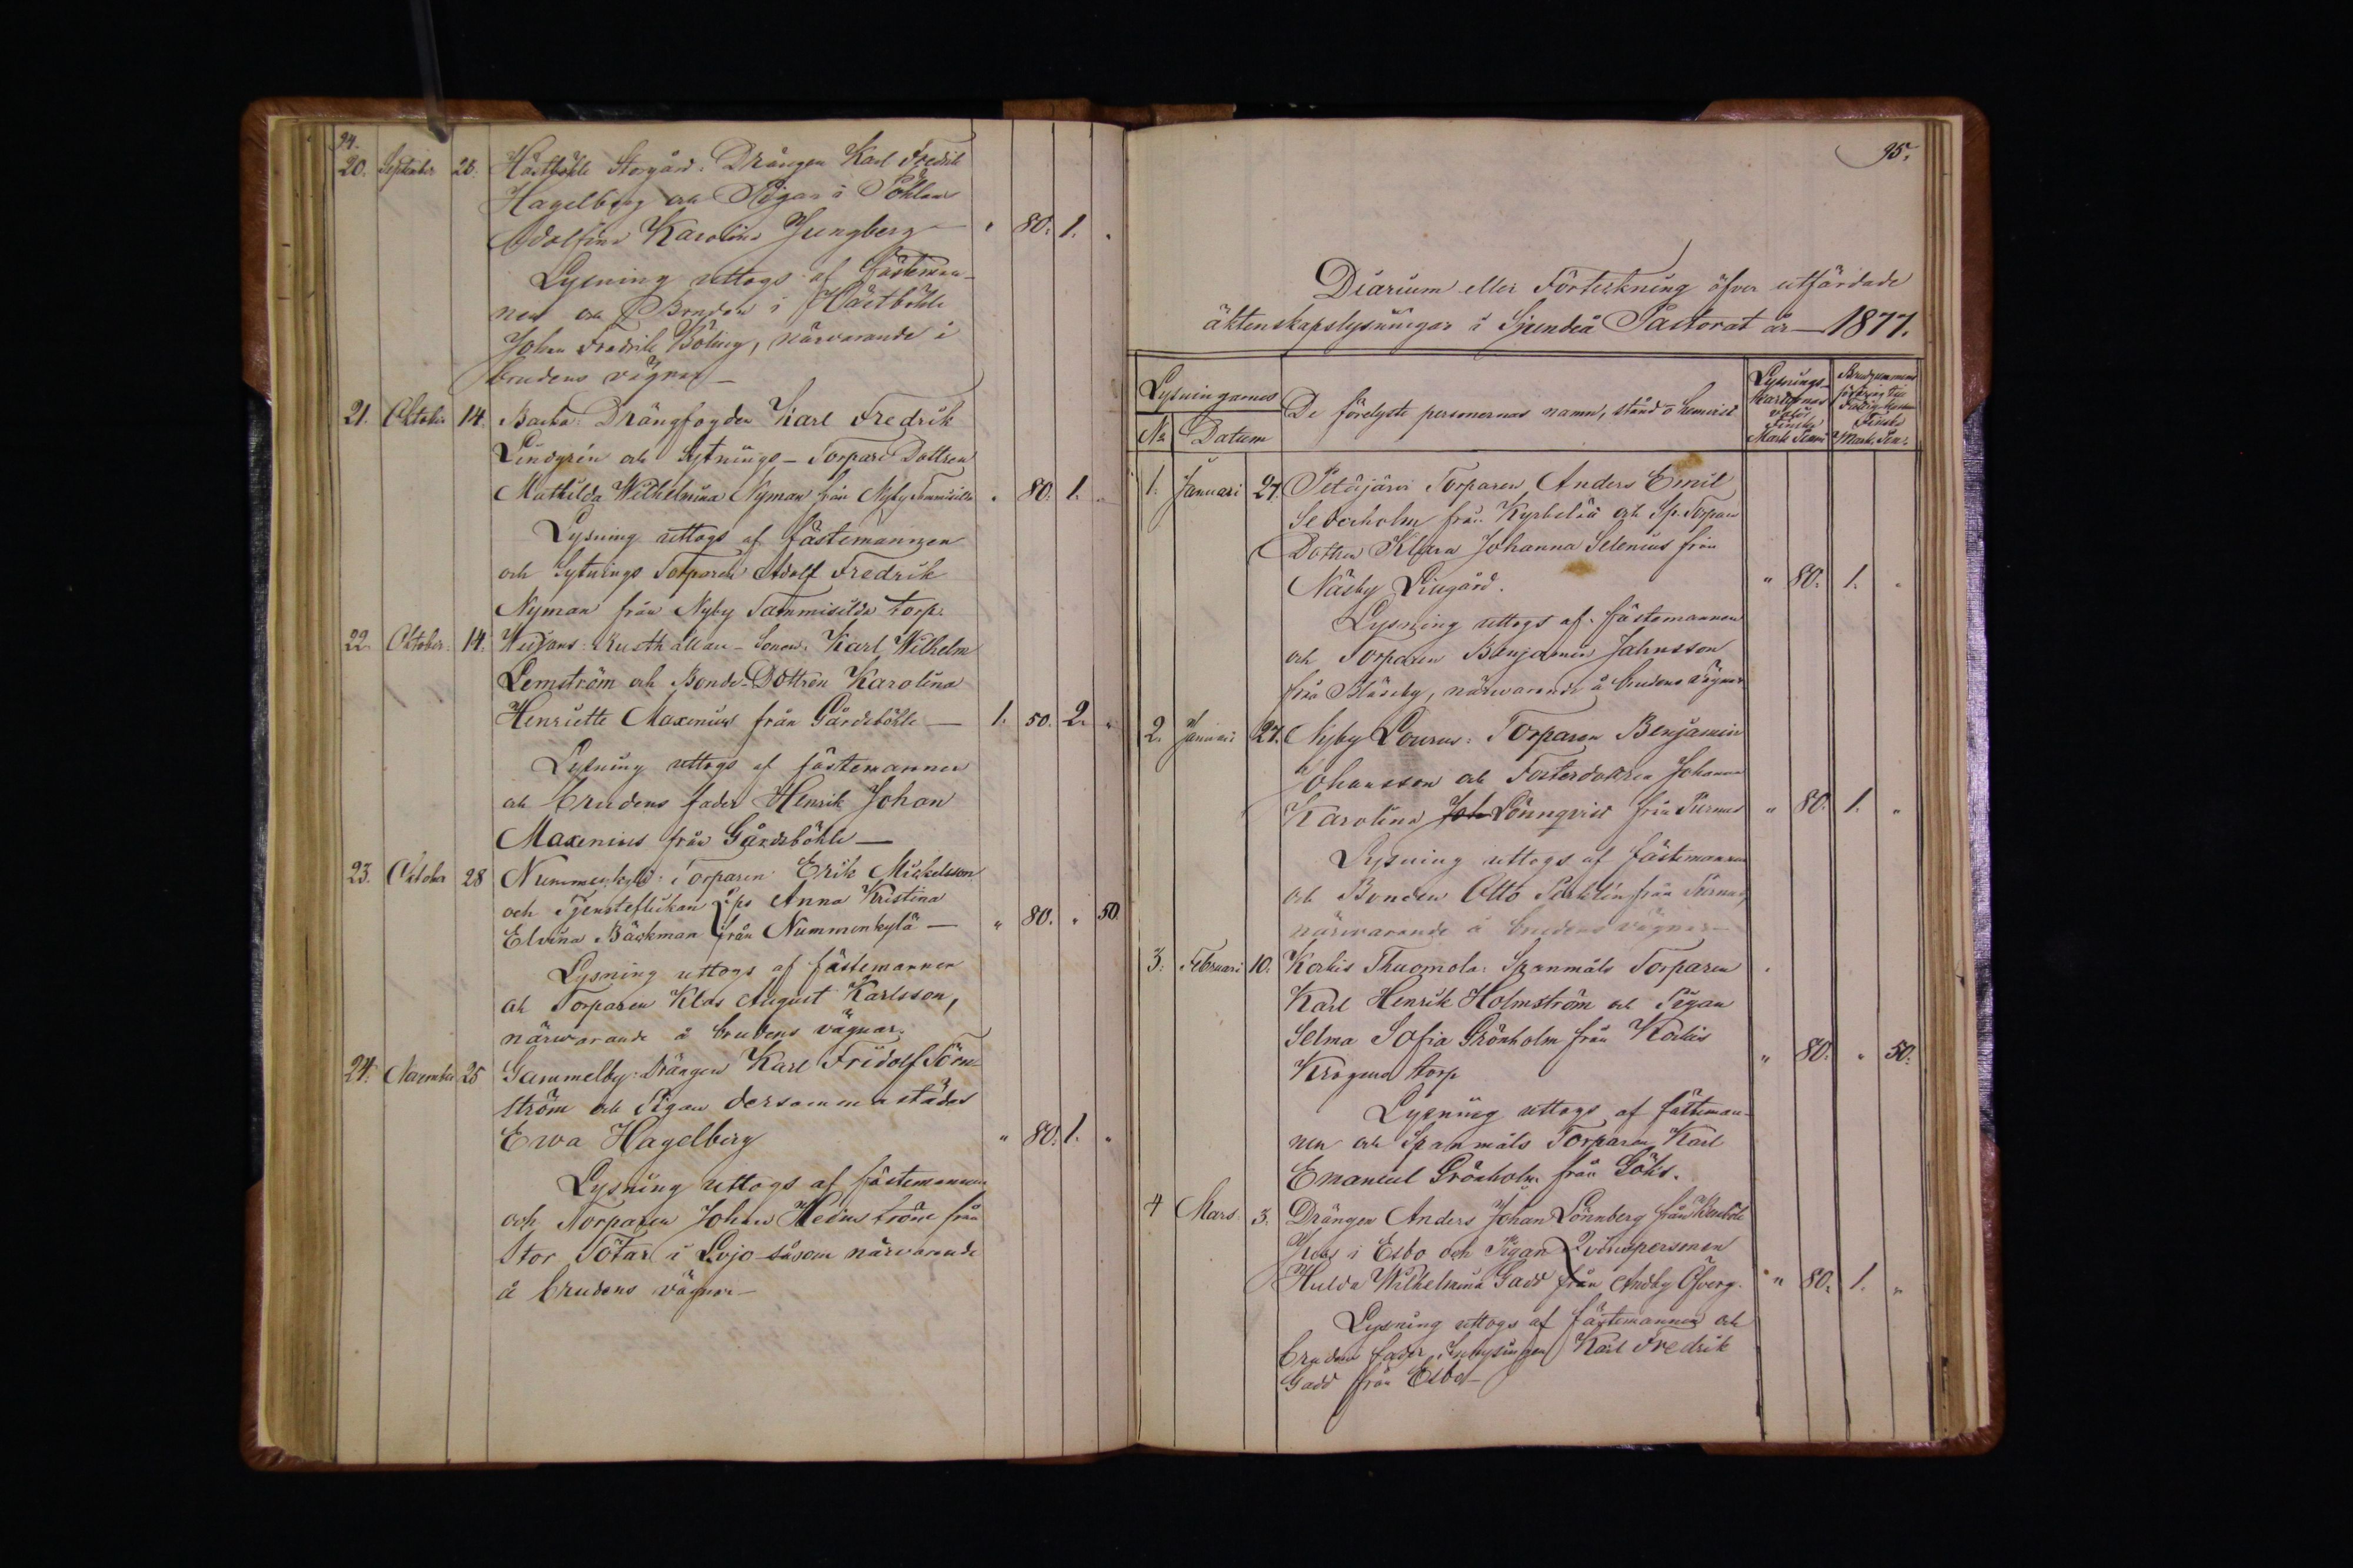 94.
20. September 23. Hästböhle Storgård: Drängen Karl Fredrik
Hagelberg och Pigan i Pöhlan
Adolfina Karolina Ljungberg — " 80. 1. "
Lysning uttogs af fästeman-
nen och Bonden i Hästböhle
Johan Fredrik Böling, närvarande å
brudens vägnar —
21. Oktober 14. Backa: Drängfogden Karl Fredrik
Lindgrén och Sytnings-Torpare Dottren
Mathilda Wilhelmina Nyman från Nyby Tammisilta " 80. 1. "
Lysning uttogs af fästemannen
och Sytnings Torparen Adolf Fredrik
Nyman från Nyby Tammisilda torp.
22. Oktober 14. Rusthållare-Sonen Karl Wilhelm
Lemström och Bonde-Dottren Karolina
Henriette Maxenius från Gårdsböhle — 1. 50. 2. "
Lysning uttogs af fästemannen
och brudens fader Henrik Johan
Maxenius från Gårdsböhle —
23. Oktober 28 Nummenkylä: Torparen Erik Mickelsson
och Tjensteflickan Qps Anna Kristina
Elvina Bäckman från Nummenkylä — " 80. " 50.
Lysning uttogs af fästemannen
och Torparen Klas August Karlsson,
närvarande å brudens vägnar.
24. November 25 Gammelby: Drängen Karl Fridolf Törn-
ström och Pigan dersammastädes
Ewa Hagelberg " 80. 1. "
Lysning uttogs af fästemannen
och Torparen Johan Heinström från
Stor Tötar i Lojo såsom närvarande
å brudens vägnar —
95.
Diarium eller Förteckning öfver utfärdade
äktenskapslysningar i Sjundeå Pastorat år — 1877.
Lysningarnes
No Datum
De förelyste personernas namn, stånd o hemvist
Lysnings-
Finska
Mark Penni
Brudgummens
Finska
Mark. Pen.
1. Januari 27. Petäjärvi Torparen Anders Emil
Sederholm från Kyrkbölä och Sp. Torpare
Dottren Klara Johanna Selenius från
Näsby Lillgård. " 80. 1. "
Lysning uttogs af fästemannen
och Torparen Benjamin Jahnsson
från Bläsaby, närwarande å brudens vägnar
2. Januari 27. Nyby Lourus: Torparen Benjamin
Johansson och Fosterdottren Johanna
Karolina Joh Lönnqvist från Purnus " 80. 1. "
Lysning uttogs af fästemannen
och Bonden Otto från Purnus,
närwarande å brudens vägnar —
3. Februari 10. Korkis Thuomola: Spanmåls Torparen
Karl Henrik Holmström och Pigan
Selma Sofia Grönholm från Korkis
Krogens torp " 80. " 50.
Lysning uttogs af fästeman-
nen och Spanmåls Torparen Karl
Emanuel Grönholm från Göks.
4 Mars 3. Drängen Anders Johan Lönnberg från
i Esbo och Pigan Qvinspersonen
Hulda Wilhelmina Gadd från Andby Öfverg. " 80. 1. "
Lysning uttogs af fästemannen och
brudens fader, Inhysingen Karl Fredrik
Gadd från Esbo —